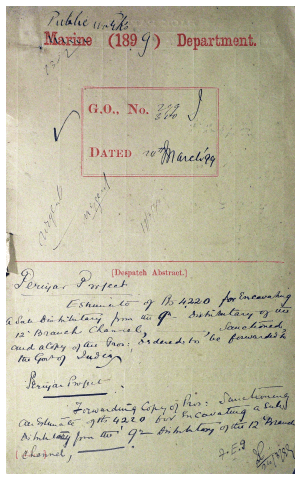 Public Works
Marine (1899) Department.
G.O., No.
I
DATED 20th March '99
urgent
urgent
[Despatch Abstract.]
Periyar Project
Estimate of Rs 4220 for Excavating
a Sub Distributary from the 9th Distributary of the
12th Branch Channel, Sanctioned
and a copy of the Pros: ordered to be forwarded to
the Govt of India
Periyar Project.
Forwarding Copy of Pros: Sanctioning
an Estimate of Rs 4220 for Excavating a Sub
Distributary from the 9th Distributary of the 12th Branch
Channel,